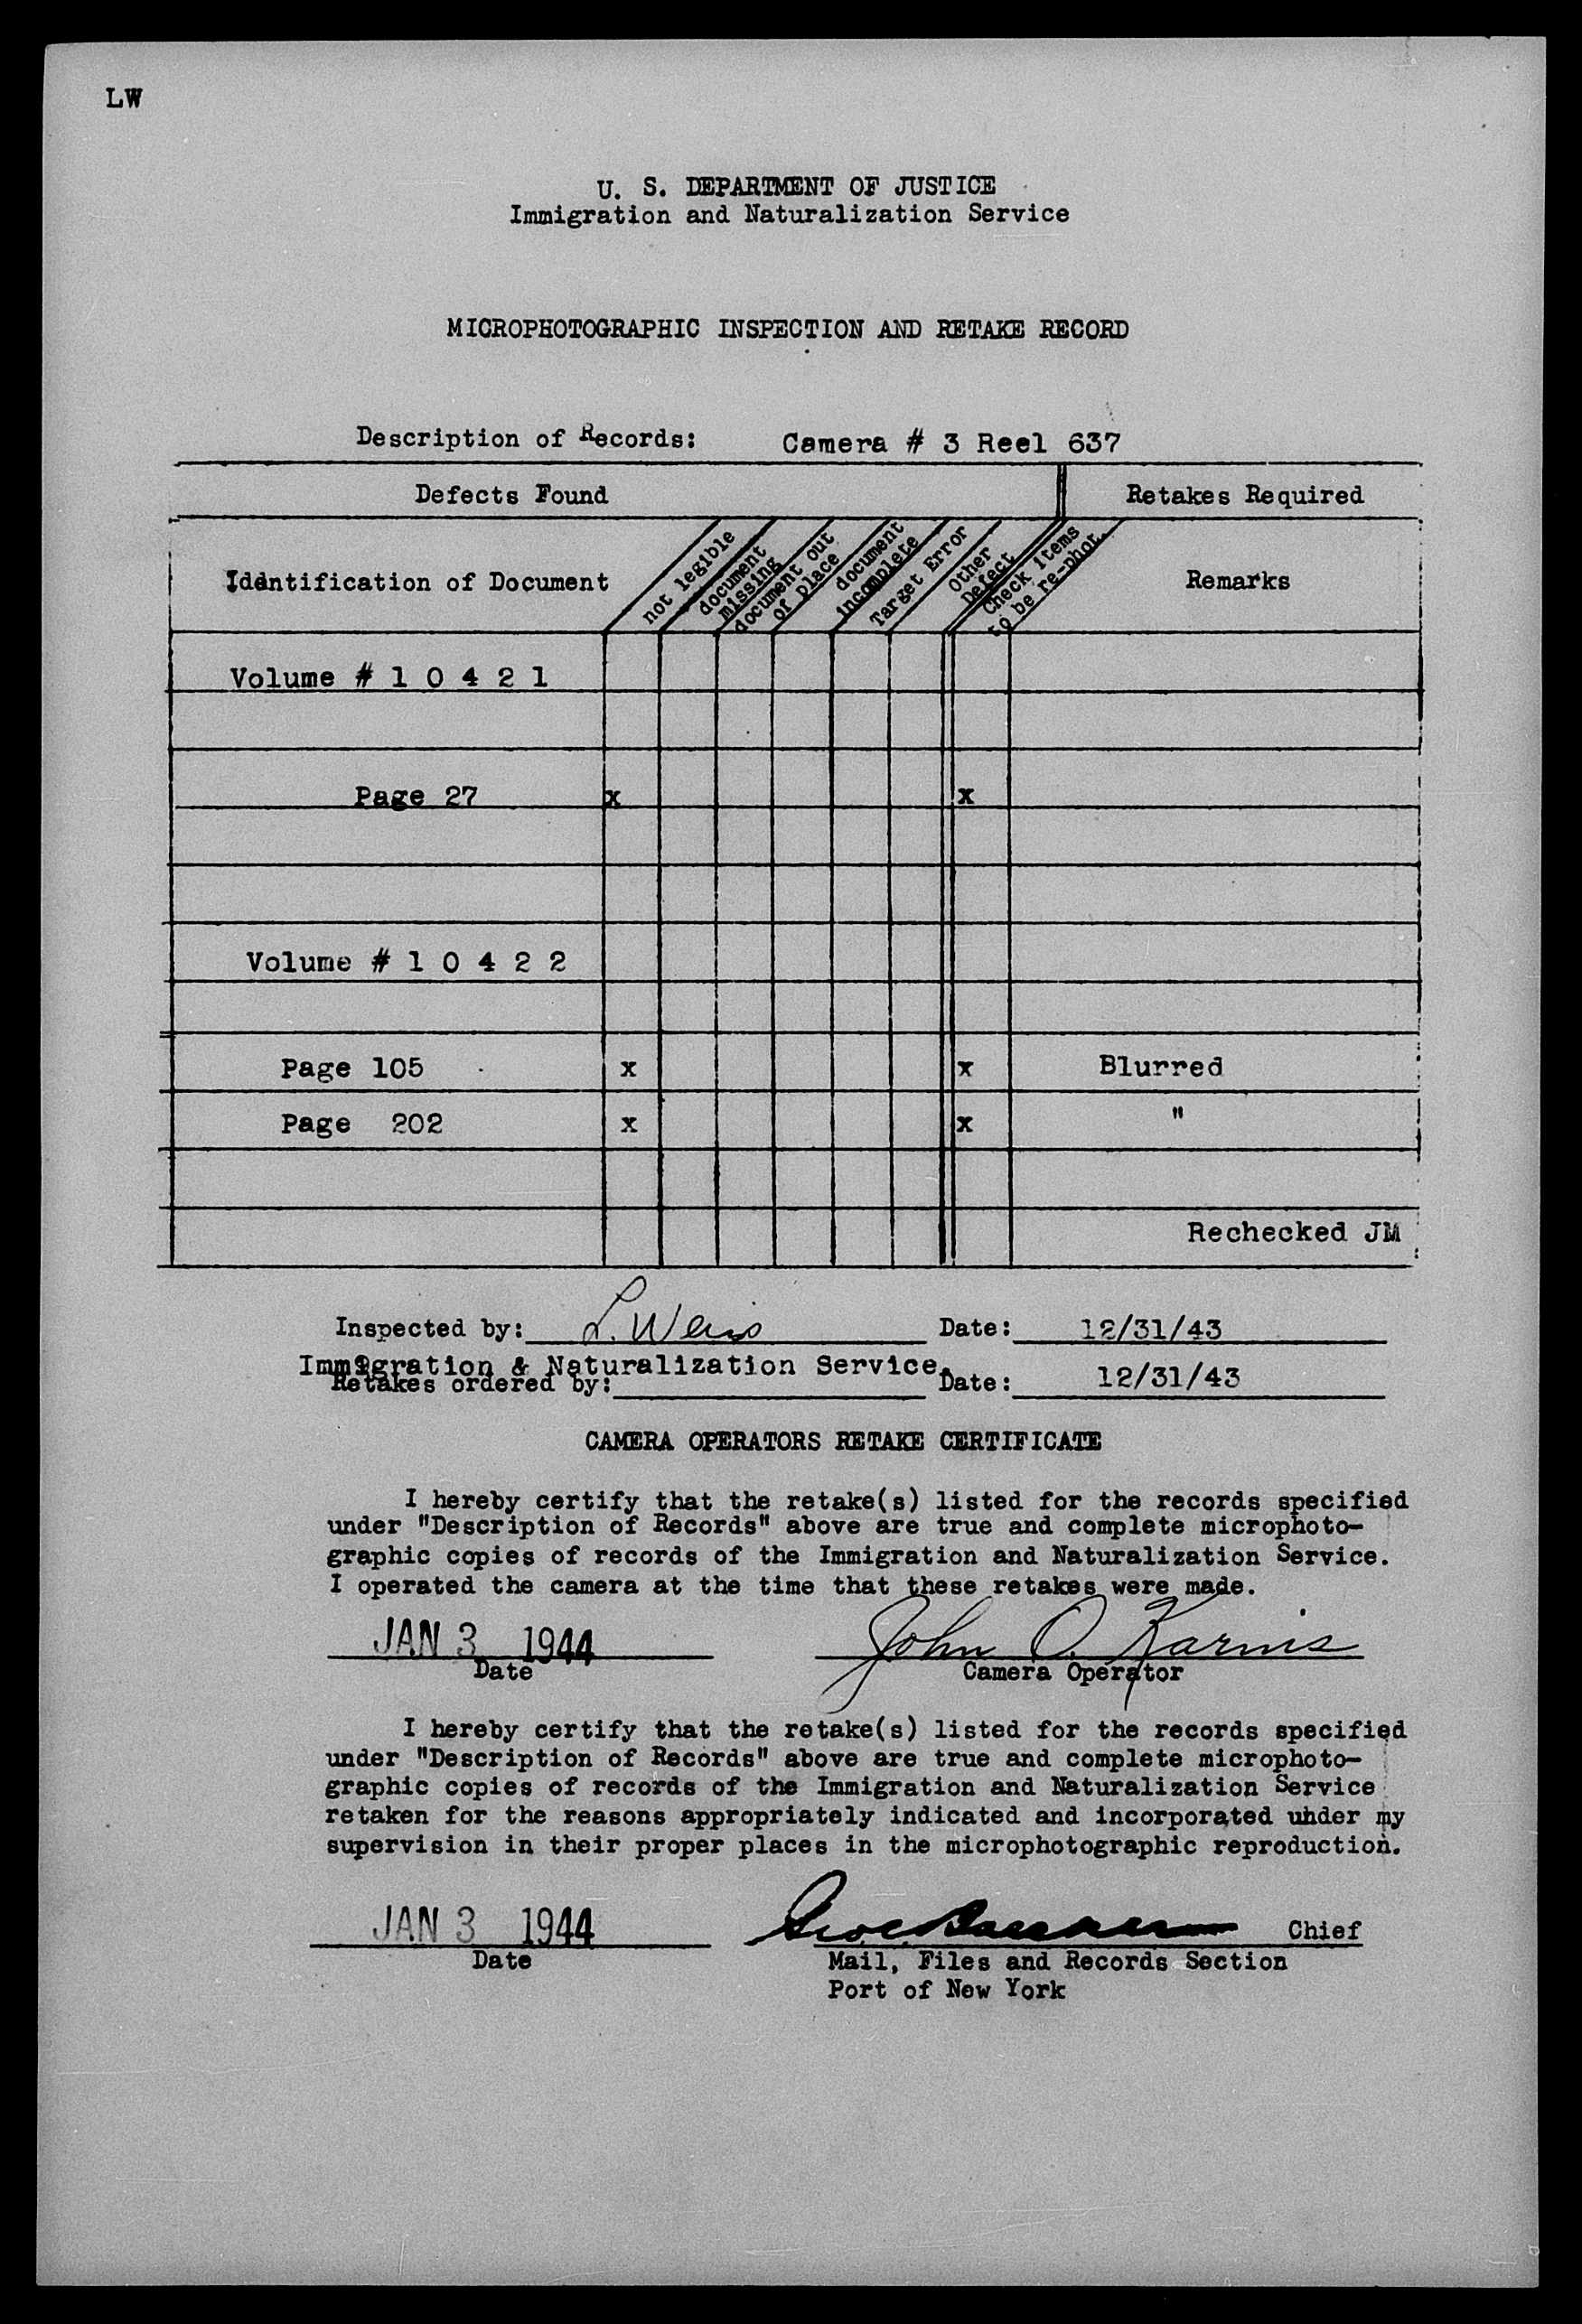 LW
U. S. DEPARTMENT OF JUSTICE
Immigration and Naturalization Service
MICROPHOTOGRAPHIC INSPECTION AND RETAKE RECORD
Description of Records: Camera # 3 Reel 637
Defects Found Retakes Required
Identification of Document not legible document missing document out of place document incomplete Target Error Other Defect Check items to be re-phot. Remarks
Volume # 1 0 4 2 1
Page 27 x x
Volume # 1 0 4 2 2
Page 105 x x Blurred
Page 202 x x "
Rechecked JM
Inspected by: L. Weis Date: 12/31/43
Immigration & Naturalization Service.
Retakes ordered by: Date: 12/31/43
CAMERA OPERATORS RETAKE CERTIFICATE
I hereby certify that the retake(s) listed for the records specified
under "Description of Records" above are true and complete microphoto-
graphic copies of records of the Immigration and Naturalization Service.
I operated the camera at the time that these retakes were made.
JAN 3 1944 John O. Karnis
Date Camera Operator
I hereby certify that the retake(s) listed for the records specified
under "Description of Records" above are true and complete microphoto-
graphic copies of records of the Immigration and Naturalization Service
retaken for the reasons appropriately indicated and incorporated under my
supervision in their proper places in the microphotographic reproduction.
JAN 3 1944 Chief
Date Mail, Files and Records Section
Port of New York